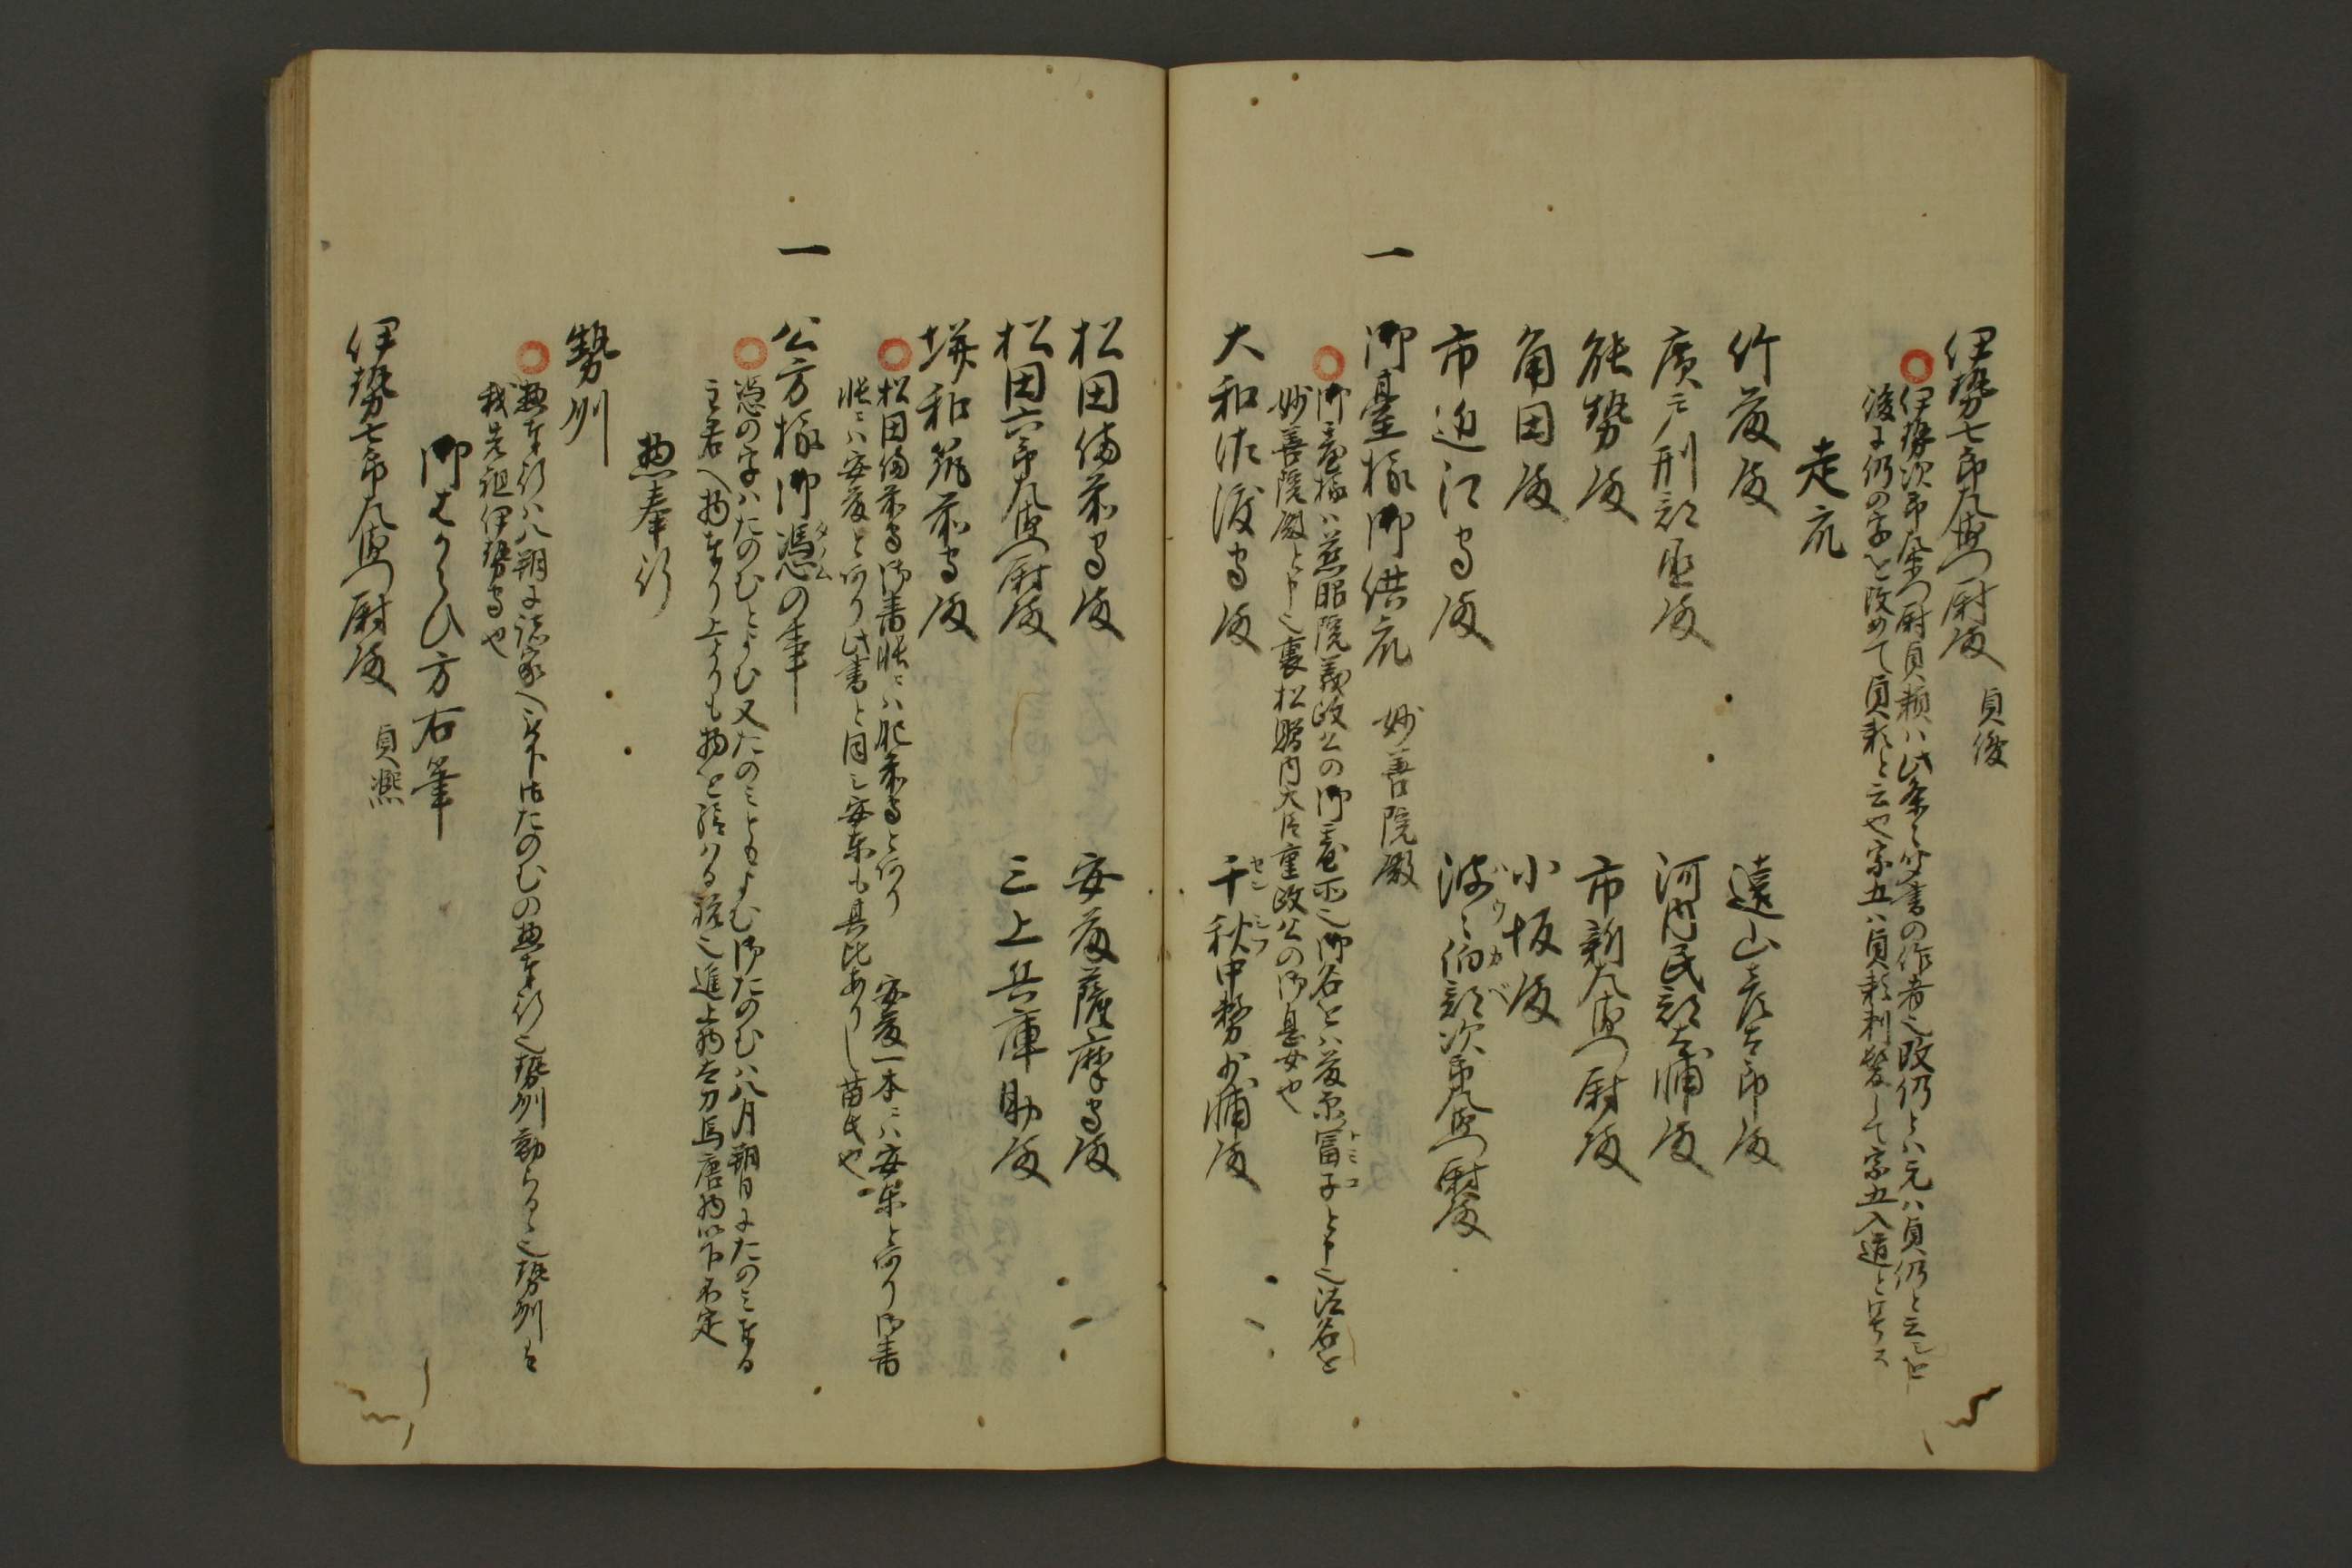 伊勢七郎左衛門尉殿 貞俊
伊勢次郎左衛門尉貞頼ハ此条々少書の作者也改仍とハ元ハ貞仍と云しを
後に仍の字を改めて貞頼と云や宗五ハ貞頼剃髪して宗五入道と号ス
走衆
竹藤殿 遠山彦太郎殿
廣戸刑部丞殿 河内民部太輔殿
能勢殿 市新左衛門尉殿
角田殿 小坂殿
市近江守殿 波々伯部次郎左衛門尉殿
ハウカベ
一 御臺様御供衆 妙善院殿
御臺様ハ慈昭院義政公の御臺所也御名をハ藤原冨子と申也法名を
トミコ
妙善院殿と申也裏松贈内大臣重政公の御息女也
大和佐渡守殿 千秋中務少輔殿
センシフ
松田備前守殿 安藤薩摩守殿
松田六郎左衛門尉殿 三上兵庫助殿
垪和筑前守殿
松田備前守御書帳ニハ肥前守と有り 安藤一本ニハ安東と有り御書
帳ニハ安藤と有り此書と同し安東も其比ありし苗氏也
一 公方様御憑の事
タノム
憑の字ハたのむとよむ又たのミともよむ御たのむハ八月朔日にたのミ奉る
主君へ物奉り上よりも物を給ハる祝也進上物太刀馬唐物以下不定
惣奉行
勢州
惣奉行ハ八朔に諸家へ下さるたのむの惣奉行也勢州勤らるゝ也勢州は
我先祖伊勢守也
御はからひ方右筆
伊勢七郎左衛門尉殿 貞熈